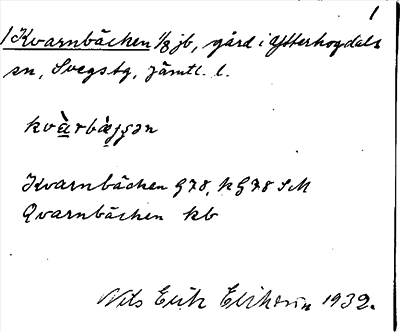 1
1 Kvarnbäcken 1/8 jb, gård i Ytterhogdals
sn, Svegs tg, Jämtl. l.
kvàrbæ̀jʃən
Kvarnbäcken G78, k G78 S M
Qvarnbäcken kb
Nils Erik Erikson 1932.